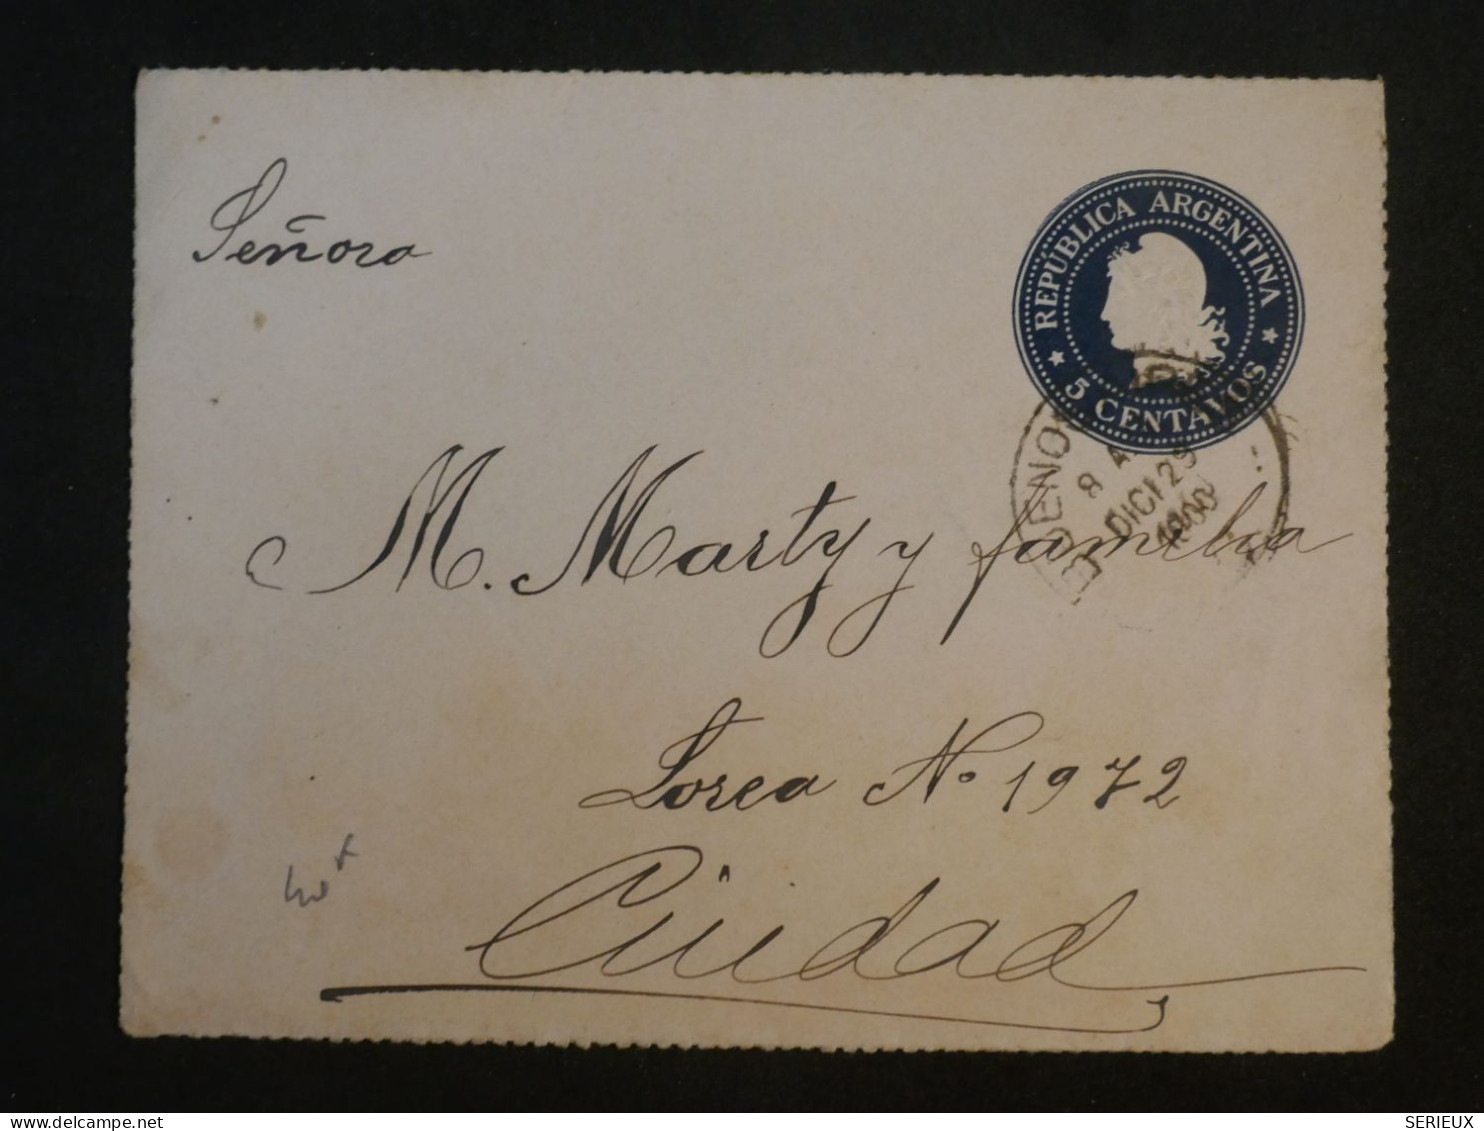 Señora
REPÚBLICA ARGENTINA
5 CENTAVOS
8 A
DICI 29
1900
M. Marty y familia
Lorea No 1972
Ciudad
delcampe.net
SERIEUX